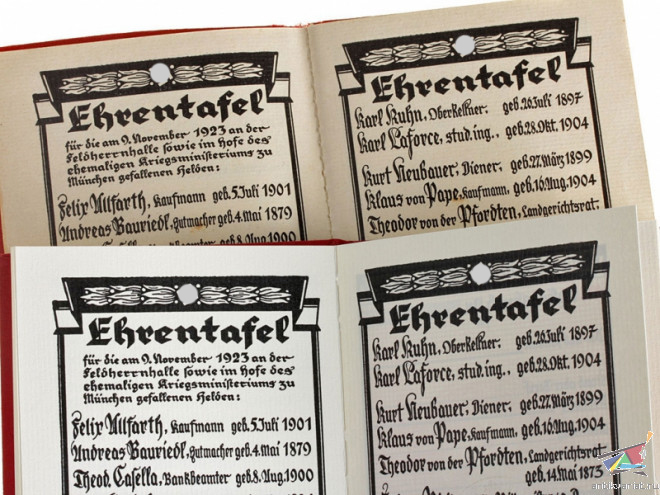 Ehrentafel
für die am 9. November 1923 an der
Feldherrnhalle sowie im Hofe des
ehemaligen Kriegsministeriums zu
München gefallenen Helden:
Felix Allfarth, Kaufmann geb. 5. Juli 1901
Andreas Bauriedl, Hutmacher geb. 4. Mai 1879
Casella, Bankbeamter geb. 8. Aug. 1900
Ehrentafel
Karl Kuhn, Oberkellner: geb. 26. Juli 1897
Karl Laforce, stud. ing., geb. 28. Okt. 1904
Kurt Neubauer, Diener: geb. 27. März 1899
Klaus von Pape, Kaufmann, geb. 16. Aug. 1904
Theodor von der Pfordten, Landgerichtsrat.
Ehrentafel
für die am 9. November 1923 an der
Feldherrnhalle sowie im Hofe des
ehemaligen Kriegsministeriums zu
München gefallenen Helden:
Felix Allfarth, Kaufmann geb. 5. Juli 1901
Andreas Bauriedl, Hutmacher geb. 4. Mai 1879
Theod. Casella, Bankbeamter geb. 8. Aug. 1900
Ehrentafel
Karl Kuhn, Oberkellner: geb. 26. Juli 1897
Karl Laforce, stud. ing., geb. 28. Okt. 1904
Kurt Neubauer, Diener: geb. 27. März 1899
Klaus von Pape, Kaufmann, geb. 16. Aug. 1904
Theodor von der Pfordten, Landgerichtsrat
geb. 14. Mai 1873